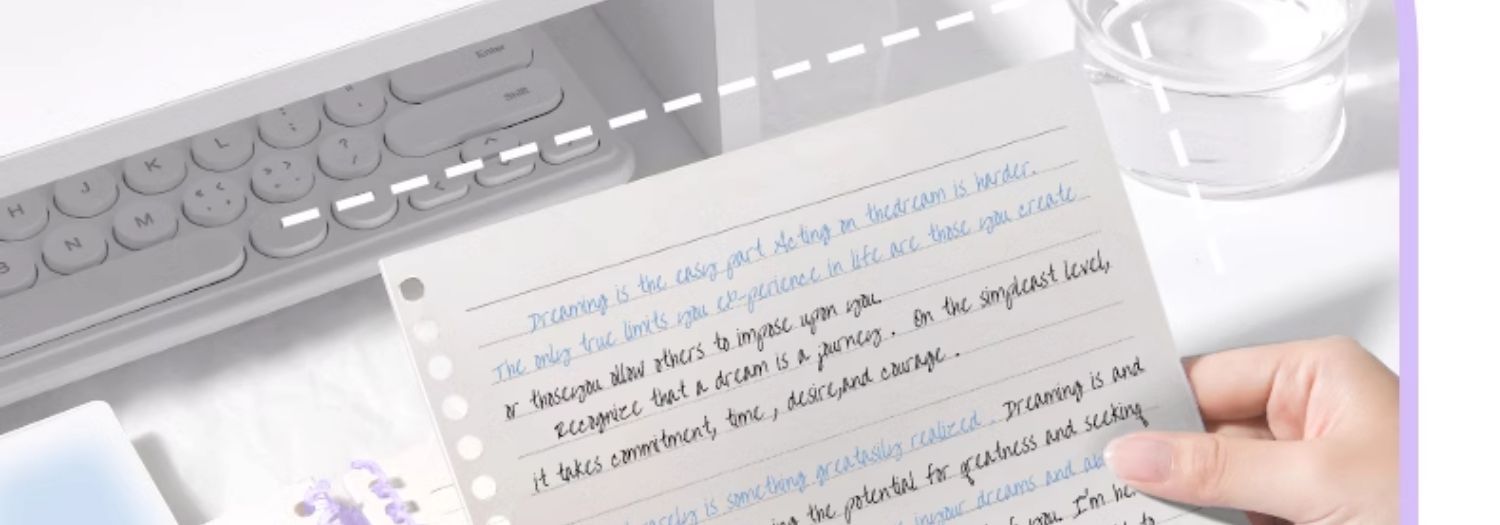 Enter
Shift
H J K L
B N M
Dreaming is the easy part Acting on thedream is harder.
The only true limits you ex-perience in life are those you create
or thoseyou allow others to impose upon you.
Recognize that a dream is a journey. On the simpleast level,
it takes commitment, time, desire,and courage.
rarely is something greatasily realized. Dreaming is and
the potential for greatness and seeking
inyour dreams and
you. I'm
to